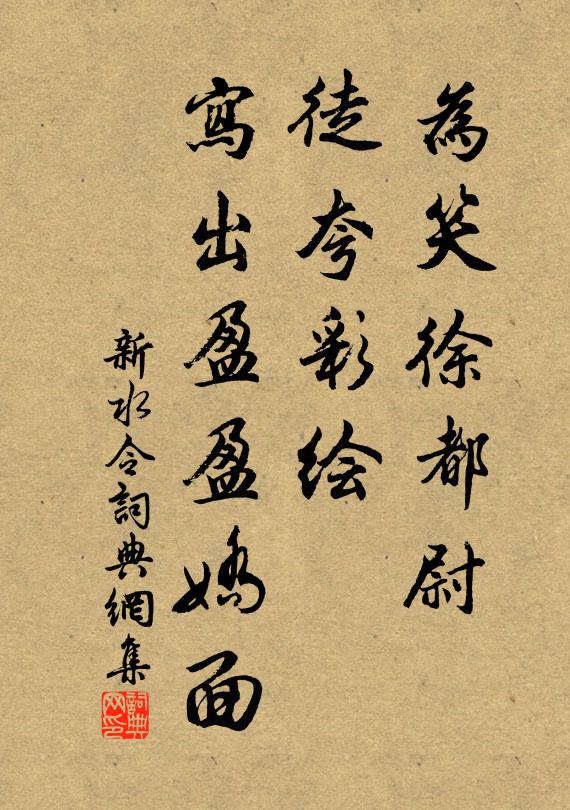 為笑徐都尉
徒夸彩绘
寫出盈盈嬌面
新水令詞典網集
詞典網印